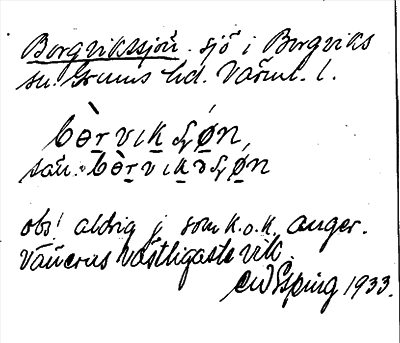 Borgvikssjön. sjö i Borgviks
sn. Grums hd. Värml. l.
bòrvikʂǿn,
bòrvikəʂǿn
obs! aldrig j som K.o.K. anger.
Vänerns västligaste vik.
1933.